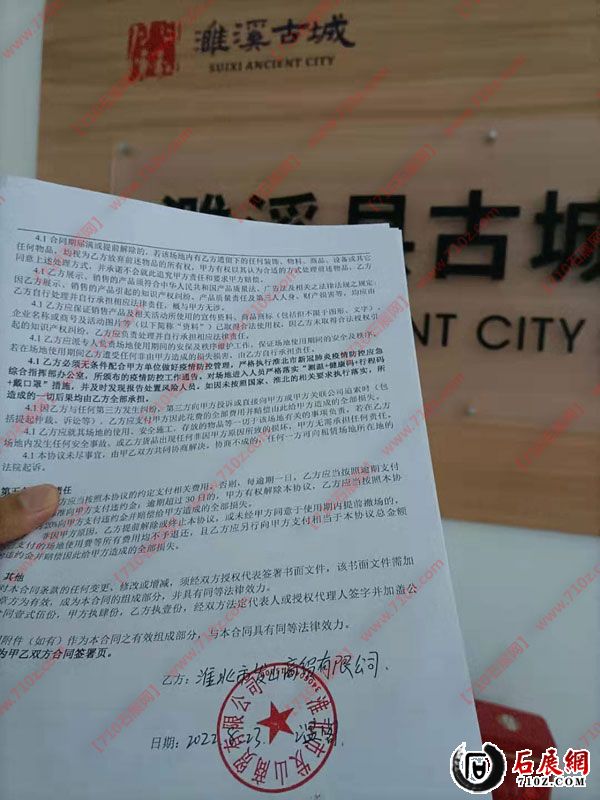 濉溪古城
SUIXI ANCIENT CITY
濉溪县古城
ENT CITY
4.1 合同期届满或提前解除的,若该场地内有乙方遗留下的任何装饰、物料、商品、设备或其它
任何物品,均视为乙方放弃前述物品的所有权,甲方有权以其认为合适的方式处理前述物品,乙方
同意上述处理方式,并承诺不会就此追究甲方责任和要求甲方赔偿。
4.1 乙方展示、销售的产品须符合中华人民共和国产品质量法、广告法及相关之法律法规之规定,
因乙方展示、销售的产品引起的知识产权纠纷、产品质量责任及第三人人身、财产损害等,均应由
乙方自行处理并自行承担相应法律责任,概与甲方无涉。
4.1 乙方应保证销售产品及相关活动所使用的宣传资料、商品商标(包括但不限于图形、文字)、
企业名称或商号及活动图片等(以下简称“资料”)已取得合法使用权,因乙方未取得合法授权引
起的知识产权纠纷,乙方应负责处理并自行承担相应法律责任。
4.1 乙方应派专人负责场地使用期间的安全及秩序维护工作,保证场地使用期间的安全及秩序,
若在场地使用期间乙方遭受任何非由甲方造成的损失损害,由乙方自行承担责任。
4.1 乙方必须无条件配合甲方单位做好疫情防控管理,严格执行淮北市新冠肺炎疫情防控应急
综合指挥部办公室,所颁布的疫情防控工作通告,对场地进入人员严格落实“测温+健康码+行程码
+戴口罩”措施,并及时发现报告处置风险人员。如因未按照国家、淮北的相关要求执行落实,所
造成的一切后果均由乙方全部承担。
4.1 因乙方与任何第三方发生纠纷,第三方向甲方投诉或直接向甲方或甲方关联公司追索时(包
括提起仲裁、诉讼等),乙方应支付甲方因此花费的全部费用并赔偿由此给甲方造成的全部损失。
4.1 乙方应就其场地的使用、安全施工、存放的物品等一切于该场地有关的事项负责,若在乙方
场地内发生任何安全事故,或乙方货品出现任何非因甲方原因所致的损坏,甲方无需承担任何责任。
4.1 本协议未尽事宜,由甲乙双方共同协商解决。协商不成的,任何一方可向租赁场地所在地的
法院起诉。
责任
方应当按照本协议的约定支付相关费用,否则,每逾期一日,乙方应当按照逾期支付
准向甲方支付违约金;逾期超过30日的,甲方有权解除本协议,乙方应当按照本协
20%向甲方支付违约金并赔偿给甲方造成的全部损失。
非因甲方原因,乙方提前解除或终止本协议,或未经甲方同意于使用期内提前撤场的,
支付的场地使用费等所有费用均不予退还,且乙方应另行向甲方支付相当于本协议总金额
违约金并赔偿因此给甲方造成的全部损失。
其他
对本合同条款的任何变更、修改或增减,须经双方授权代表签署书面文件,该书面文件需加
章方为有效,成为本合同的组成部分,并具有同等法律效力。
合同壹式伍份,甲方执肆份,乙方执壹份,经双方法定代表人或授权代理人签字并加盖公
附件(如有)作为本合同之有效组成部分,与本合同具有同等法律效力。
为甲乙双方合同签署页。
乙方:淮北市发山商贸有限公司.
日期:2022.8.23.
淮北市发山商贸有限公司
【710石展网】www.710z.com
石展網
710Z.COM